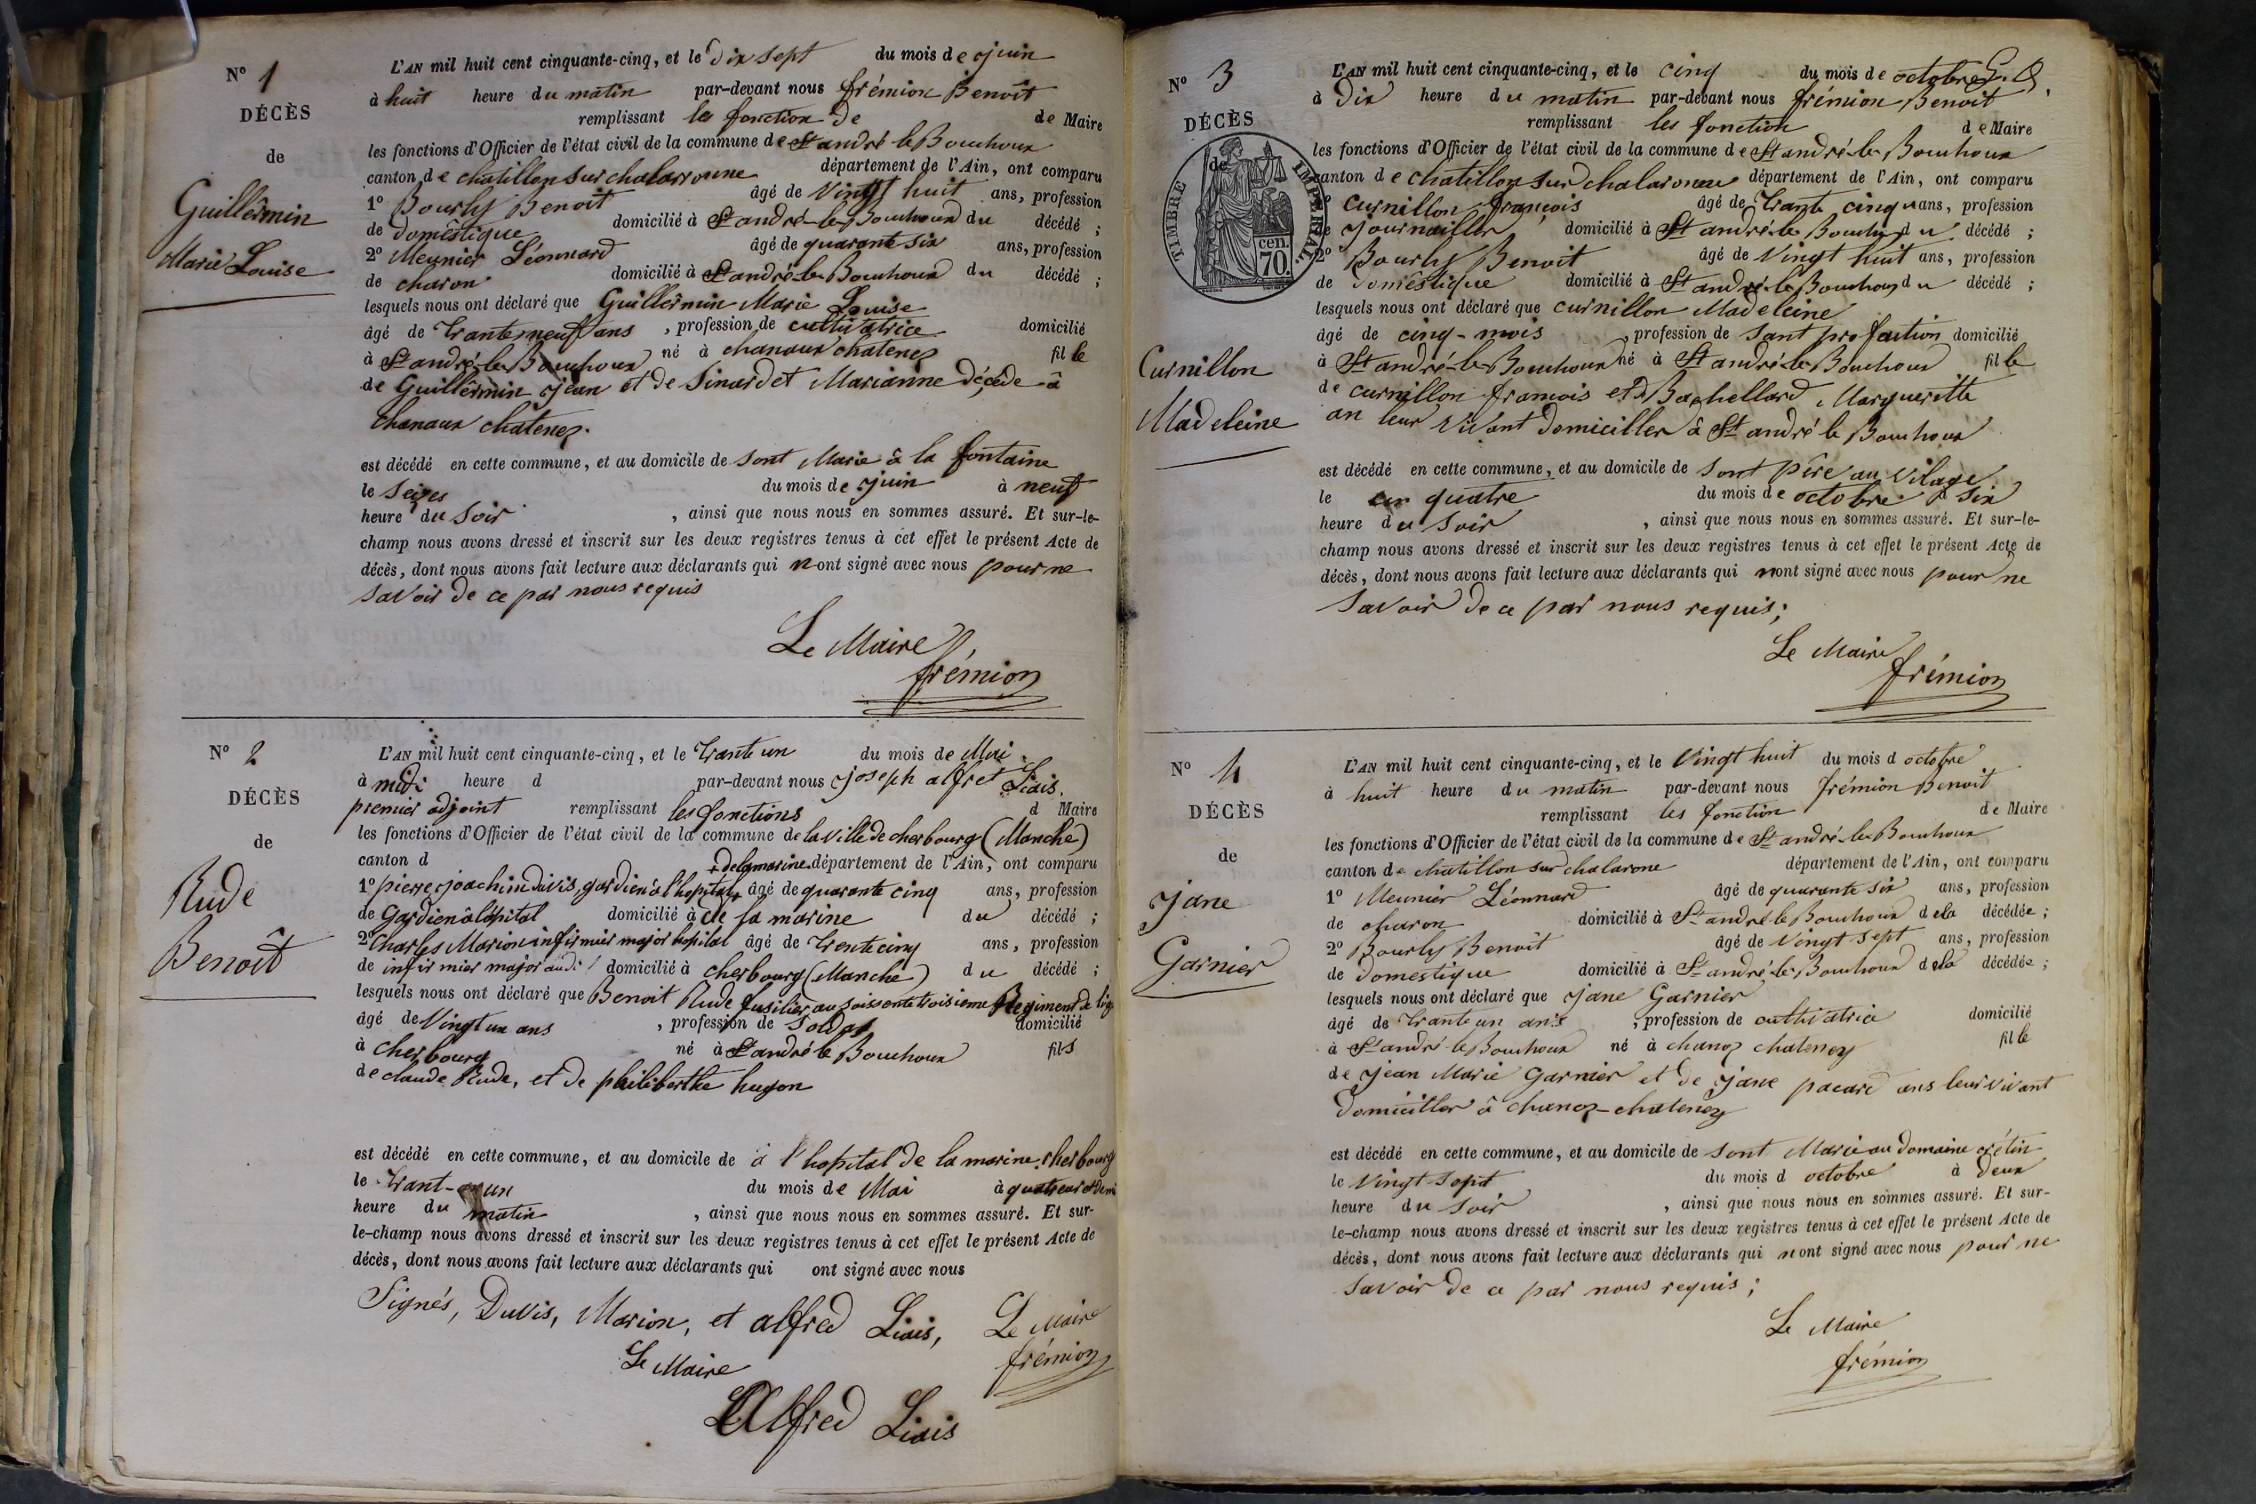 N° 1
DÉCÈS
de
Guillèrmin
Marie Louise
L'AN mil huit cent cinquante-cinq, et le Dix sept du mois de juin
à huit heure du matin par-devant nous frémion Benoît
remplissant les fonction de de Maire
les fonctions d'Officier de l'état civil de la commune de St andré le Bouchoux
canton de chatillon sur chalaronne département de l'Ain, ont comparu
1° Bourly Benoit âgé de Vingt huit ans, profession
de doméstique domicilié à St andré-le-Bouchoux du décédé ;
2° Meunier Léonnard âgé de quarante six ans, profession
de charon domicilié à St andré-le-Bouchoux du décédé ;
lesquels nous ont déclaré que Guillèrmin Marie Louise
âgé de trante neuf ans , profession de cultivatrice domicilié
à St andré-le-Bouchoux né à chanaux chatenez fil le
de Guillèrmin jean et de Sinardet Marianne décéde à
chanaux chatenez.
est décédé en cette commune, et au domicile de sont Marie à la fontaine
le Seizes du mois de juin à neuf
heure du soir , ainsi que nous nous en sommes assuré. Et sur-le-
champ nous avons dressé et inscrit sur les deux registres tenus à cet effet le présent Acte de
décès, dont nous avons fait lecture aux déclarants qui n ont signé avec nous pour ne
savoir de ce par nous requis
Le Maire
frémion
N° 2
DÉCÈS
de
Rude
Benoît
L'AN mil huit cent cinquante-cinq, et le trante un du mois de Mai
à midi heure d par-devant nous joseph alfret Liais.
premier adjoint remplissant les fonctions d Maire
les fonctions d'Officier de l'état civil de la commune de la ville de cherbourg (Manche)
canton d + de la marine. département de l'Ain, ont comparu
1° pierre joachim duvis, gardien à l'hopital + âgé de quarante cinq ans, profession
de gardien à lôpital domicilié à de la marine du décédé ;
2° Charles Marion infirmier major hopital âgé de trente cinq ans, profession
de infirmier major domicilié à cherbourg (Manche) du décédé ;
lesquels nous ont déclaré que Benoit Rude fusilier au soissente troisieme Regiment de lig
âgé de Vingt un ans , profession de soldat domicilié
à cherbourg né à St andré le Bouchoux fils
de claude Rude, et de philiberthe hugon
est décédé en cette commune, et au domicile de à l'hopital de la marine. cherbourg
le trant-un du mois de Mai à quatreur et demi
heure du matin , ainsi que nous nous en sommes assuré. Et sur-
le-champ nous avons dressé et inscrit sur les deux registres tenus à cet effet le présent Acte de
décès, dont nous avons fait lecture aux déclarants qui ont signé avec nous
Signés, Duvis, Marion, et alfred Liais, Le Maire
Le Maire frémion
Alfred Liais
N° 3
DÉCÈS
de
TIMBRE IMPÉRIAL
70 cen.
Curnillon
Madeleine
L'AN mil huit cent cinquante-cinq, et le cinq du mois de octobre
à Dix heure du matin par-devant nous frémion Benoit
remplissant les fonction de Maire
les fonctions d'Officier de l'état civil de la commune de St andré-le-Bouchoux
canton de chatillon sur chalaronne département de l'Ain, ont comparu
curnillon françois âgé de trante cinq ans, profession
de journailler domicilié à St andré-le-Bouchu du décédé ;
2° Bourly Benoit âgé de Vingt huit ans, profession
de doméstique domicilié à St andré-le-Bouchoux du décédé ;
lesquels nous ont déclaré que curnillon Madeleine
âgé de cinq-mois , profession de sant profaition domicilié
à St andré-le-Bouchoux né à St andré-le-Bouchoux fil le
de curnillon francois et de Bachellard Margueritte
an leur vivant domiciller à St andré le Bouchoux
est décédé en cette commune, et au domicile de sont père au vilage
le quatre du mois de octobre à six
heure du soir , ainsi que nous nous en sommes assuré. Et sur-le-
champ nous avons dressé et inscrit sur les deux registres tenus à cet effet le présent Acte de
décès, dont nous avons fait lecture aux déclarants qui n ont signé avec nous pour ne
savoir de ce par nous requis ;
Le Maire
frémion
N° 4
DÉCÈS
de
jane
Garnier
L'AN mil huit cent cinquante-cinq, et le Vingt huit du mois d octobre
à huit heure du matin par-devant nous frémion Benoit
remplissant les fonction de Maire
les fonctions d'Officier de l'état civil de la commune de St andré-le-Bouchoux
canton de chatillon sur chalarone département de l'Ain, ont comparu
1° Meunier Léonnard âgé de quarante six ans, profession
de charon domicilié à St andré-le-Bouchoux de la décédée ;
2° Bourly Benoit âgé de Vingt sept ans, profession
de domestique domicilié à St andré-le-Bouchoux de la décédée ;
lesquels nous ont déclaré que jane Garnier
âgé de trante un ans , profession de cultivatrice domicilié
à St andré-le-Bouchoux né à chanoz chatenay fil le
de jean Marie Garnier et de jane pacard ans leur vivant
domiciller à chanoz-chatenay
est décédé en cette commune, et au domicile de sont Marie au domaine crétin
le vingt sept du mois d octobre à deux
heure du soir , ainsi que nous nous en sommes assuré. Et sur-
le-champ nous avons dressé et inscrit sur les deux registres tenus à cet effet le présent Acte de
décès, dont nous avons fait lecture aux déclarants qui n ont signé avec nous pour ne
savoir de ce par nous requis ;
Le Maire
frémion